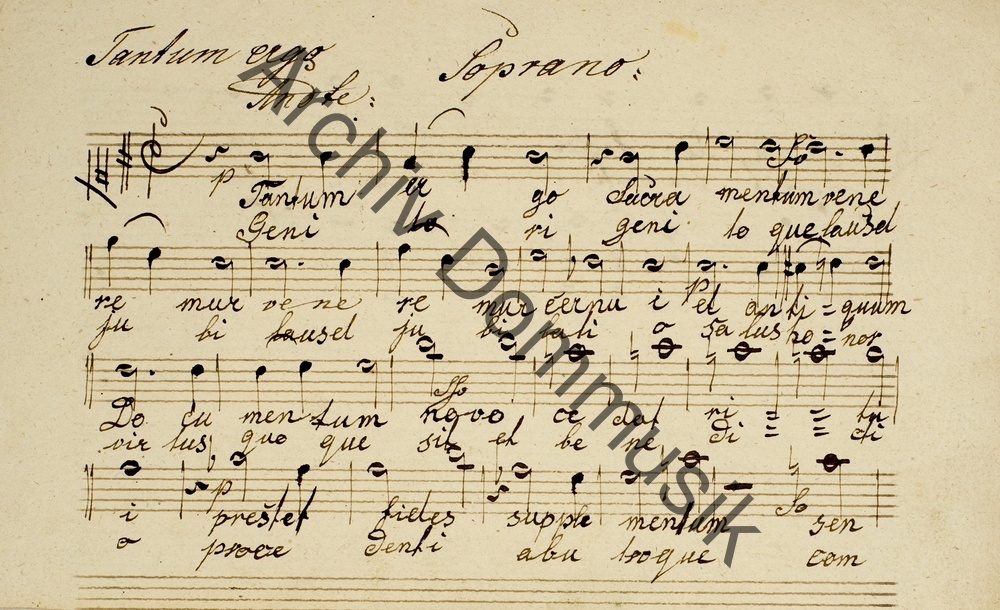 Tantum ergo Soprano:
Andte:
p
Tantum er go Sacra mentum vene
Geni to ri geni to que lausel
re mur ve ne re mur cernu i et anti = quum
ju bi lausel ju bi lati o salus ho = nor
Do cu men tum novo ce dat ri = = tu
vir tus quo que sit et be ne di = = cti
i prestet fides supple mentum sen
o proce denti abu troque com
Archiv Dommusik